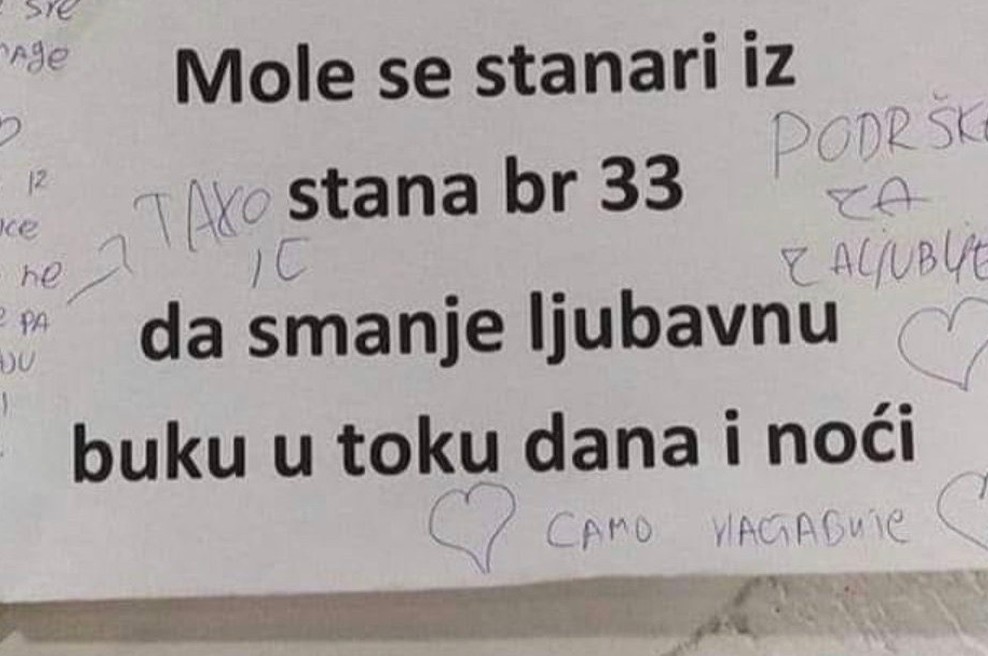 sre
Mole se stanari iz
stana br 33
da smanje ljubavnu
buku u toku dana i noći
iz
ne
PA
TAKO
JE
PODRŠK
ZA
ZALJUBLJE
CAMO NAGABUJE